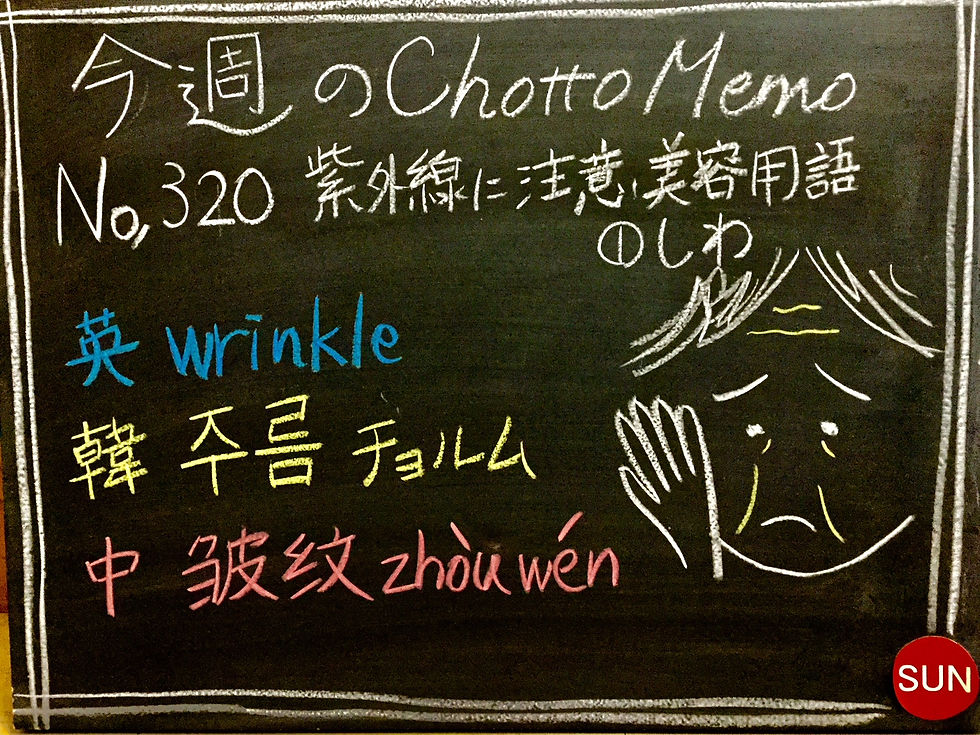 今週のChotto Memo
No,320 紫外線に注意、美容用語
①しわ
英 wrinkle
韓 주름 チョルム
中 皱纹 zhòu wén
SUN